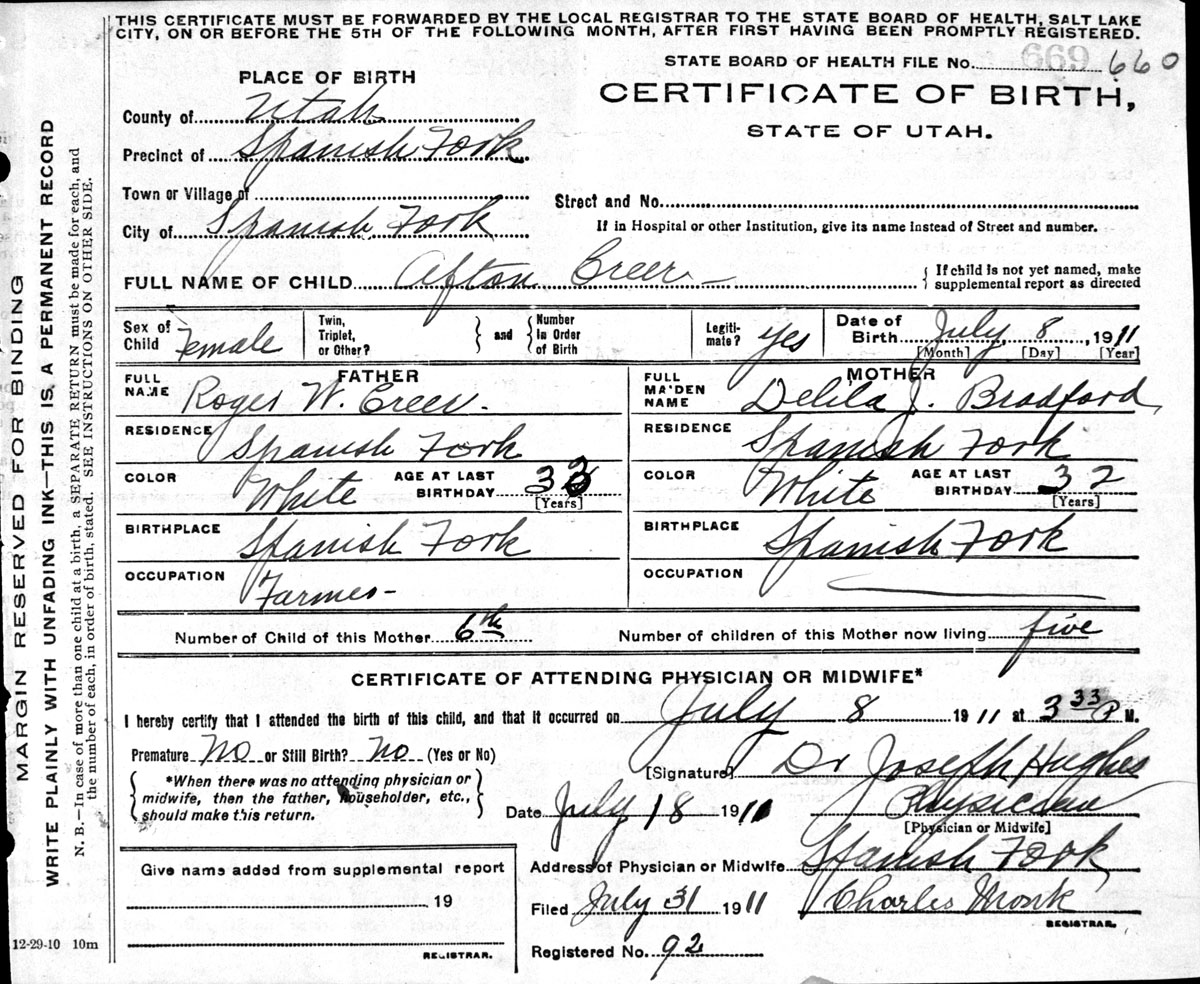 THIS CERTIFICATE MUST BE FORWARDED BY THE LOCAL REGISTRAR TO THE STATE BOARD OF HEALTH, SALT LAKE
CITY, ON OR BEFORE THE 5TH OF THE FOLLOWING MONTH, AFTER FIRST HAVING BEEN PROMPTLY REGISTERED.
STATE BOARD OF HEALTH FILE No. 669 660
PLACE OF BIRTH
CERTIFICATE OF BIRTH,
STATE OF UTAH.
County of Utah
Precinct of Spanish Fork
Town or Village of
Street and No.
City of Spanish Fork
If in Hospital or other Institution, give its name instead of Street and number.
FULL NAME OF CHILD Afton Creer
{ If child is not yet named, make
supplemental report as directed
Sex of Child Female
Twin, Triplet, or Other?
and
Number in Order of Birth
Legitimate? yes
Date of Birth July 8, 1911
[Month] [Day] [Year]
FATHER
FULL NAME Roger W. Creer
RESIDENCE Spanish Fork
COLOR White
AGE AT LAST BIRTHDAY 33
[Years]
BIRTHPLACE Spanish Fork
OCCUPATION Farmer
MOTHER
FULL MAIDEN NAME Delila J. Bradford
RESIDENCE Spanish Fork
COLOR White
AGE AT LAST BIRTHDAY 32
[Years]
BIRTHPLACE Spanish Fork
OCCUPATION
Number of Child of this Mother 6th
Number of children of this Mother now living five
CERTIFICATE OF ATTENDING PHYSICIAN OR MIDWIFE*
I hereby certify that I attended the birth of this child, and that it occurred on July 8 1911 at 3 33 P. M.
Premature No or Still Birth? No (Yes or No)
*When there was no attending physician or
midwife, then the father, householder, etc.,
should make this return.
[Signature] Dr Joseph Hughes
Physician
[Physician or Midwife]
Date July 18 1911
Address of Physician or Midwife Spanish Fork
Filed July 31 1911
Charles Monk
REGISTRAR.
Registered No. 92
Give name added from supplemental report
19
REGISTRAR.
12-29-10 10m
MARGIN RESERVED FOR BINDING
WRITE PLAINLY WITH UNFADING INK—THIS IS A PERMANENT RECORD
N. B.—In case of more than one child at a birth, a SEPARATE RETURN must be made for each, and
the number of each, in order of birth, stated. SEE INSTRUCTIONS ON OTHER SIDE.